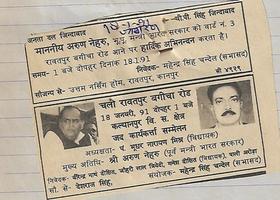 जनता दल जिन्दाबाद वी.पी. सिंह जिन्दाबाद
माननीय अरुण नेहरू, भू.पू. मन्त्री भारत सरकार को वार्ड नं. 3
रावतपुर बगीचा रोड आने पर हार्दिक अभिनन्दन करता है।
समय- 1 बजे दोपहर दिनांक 18.1.91
निवेदक- महेन्द्र सिंह चन्देल (सभासद)
सौजन्य से- उत्तम नर्सिंग होम, रावतपुर, कानपुर
चलो रावतपुर बगीचा रोड
18 जनवरी, 91 दोपहर 1 बजे
कल्यानपुर वि. स. क्षेत्र
जद कार्यकर्ता सम्मेलन
अध्यक्षता- पं. भूधर नारायण मिश्र (विधायक)
मुख्य अतिथि- श्री अरुण नेहरू (पूर्व मन्त्री भारत सरकार)
सी. के. देशराज सिंह, संयोजक- महेन्द्र सिंह चन्देल (सभासद)